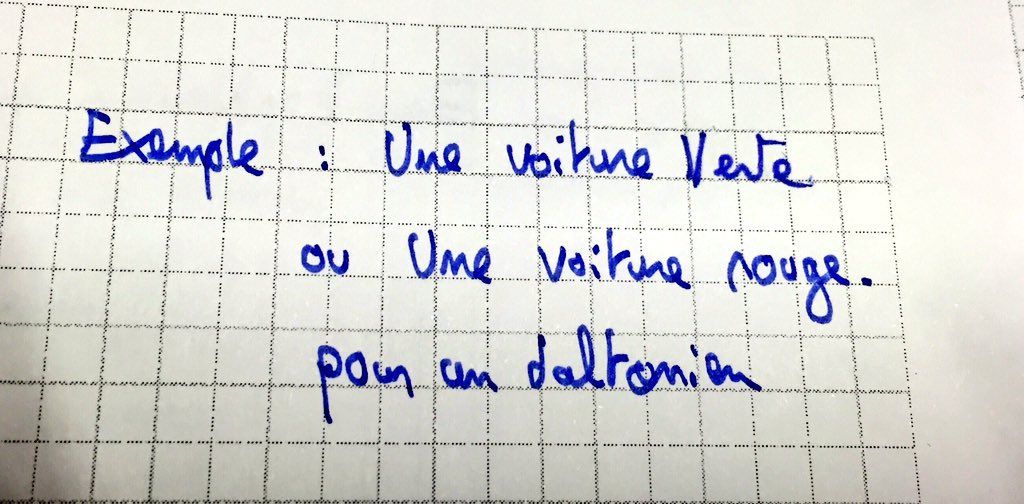 Exemple : Une voiture Verte
ou Une voiture rouge.
pour un daltonien